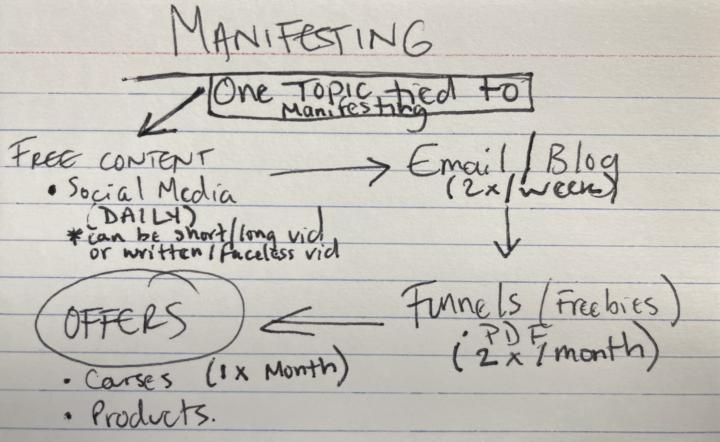 MANIFESTING
One Topic tied to
Manifesting
FREE CONTENT
• Social Media
(DAILY)
*can be short/long vid
or written/faceless vid
Email/Blog
(2x/week)
Funnels (Freebies)
• PDF
(2x/month)
OFFERS
• Carses (1x Month)
• Products.